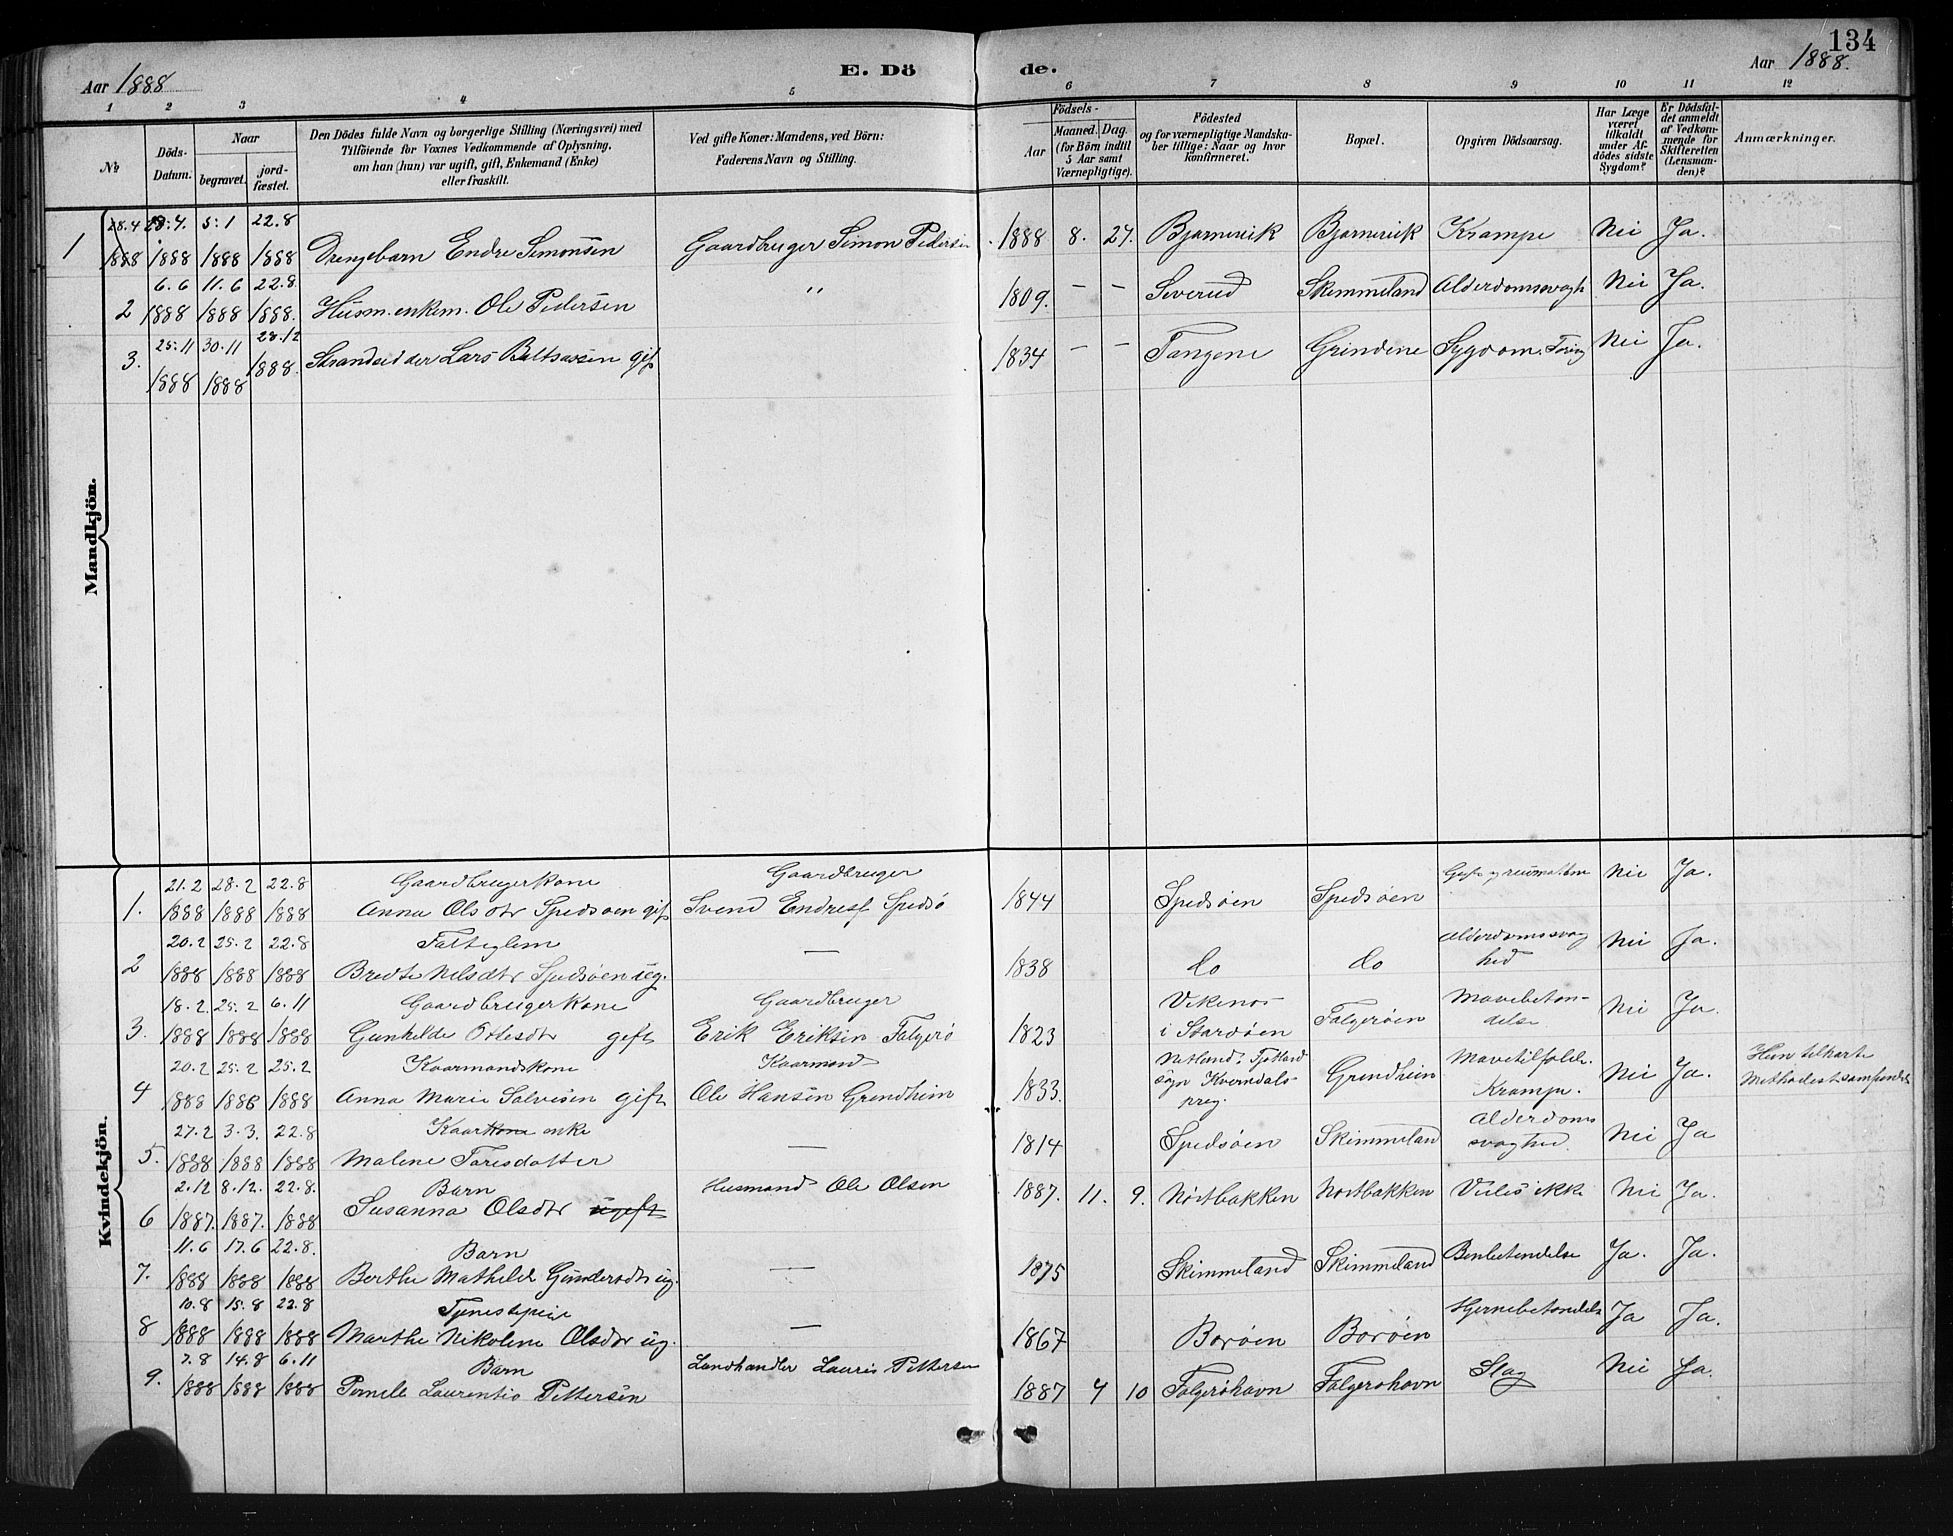 134
Aar 1888
E. Dö
de.
Aar 1888.
1 2 3 4 5 6 7 8 9 10 11 12
No
Döds-
Datum.
Naar
begravet.
jord-
fæstet.
Den Dödes fulde Navn og borgerlige Stilling (Næringsvei) med
Tilföiende for Voxnes Vedkommende af Oplysning,
om han (hun) var ugift, gift, Enkemand (Enke)
eller fraskilt.
Ved gifte Koner: Mandens, ved Börn:
Faderens Navn og Stilling.
Födsels-
Aar
Maaned. Dag.
(for Börn indtil
5 Aar samt
Værnepligtige).
Födested
og for værnepligtige Mandska-
ber tillige: Naar og hvor
konfirmeret.
Bopæl.
Opgiven Dödsaarsag.
Har Læge
været
tilkaldt
under Af-
dödes sidste
Sygdom?
Er Dödsfal-
det anmeldt
af Vedkom-
mende for
Skifteretten
(Lensman-
den)?
Anmærkninger.
Mandkjön.
28.4 28.4. 5.1 22.8
1 1888 1888 1888 1888 Drengebarn Endre Simonsen Gaardbruger Simon Pedersen 1888 8. 27. Bjørnevik Bjørnevik Krampe Nei Ja.
6.6 11.6 22.8
2 1888 1888 1888. Husm. enkem. Ole Pedersen " 1809. - - Severud Skimmeland Alderdomssvagh Nei Ja.
25.11 30.11 28.12
3. 1888 1888 1888. Strandsidder Lars Baltsassen gift 1834 - - Tangene Grindene Sygdom. Nei Ja.
Kvindekjön.
21.2 28.2 22.8 Gaardbrugerkone Gaardbruger
1. 1888 1888 1888 Anna Olsdtr Spedsøen gift Svend Endres Spedsø 1844 Spedsøen Spedsøen Nei Ja.
20.2 25.2 22.8 Fattiglem Alderdomssvag
2 1888 1888 1888 Bredte Nilsdtr Spedsøen ug. — 1838 do do hed Nei Ja.
18.2 25.2 6.11 Gaardbrugerkone Gaardbruger Vikenes Mavebeten-
3. 1888 1888 1888 Gunhilde Ottesdtr gift Erik Eriksen Folgerø 1823 i Stordøen Folgerøen delse Nei Ja.
20.2 25.2 25.2 Kaarmandskone Kaarmand Netland, Fjotland Mavetilfælde. Hun tilhørte
4 1888 1888 1888 Anna Marie Salvesen gift Ole Hansen Grendheim 1833. sogn Kverndals- Grendheim Krampe. Nei Ja. Methodistsamfundet
preg.
27.2 3.3. 22.8 Kaarkone enke Alderdoms
5. 1888 1888 1888 Malene Taresdatter — 1814 Spedsøen Skimmeland svaghed Nei Ja
2.12 8.12. 22.8. Barn Husmand Ole Olsen
6 1887. 1887. 1888 Susanna Olsdtr ugift 1887. 11. 9. Nortbakken Nortbakken Vides ikke Nei Ja.
11.6 17.6 22.8. Barn
7. 1888 1888 1888 Berthe Mathilde Gundersdtr ug. — 1875 Skimmeland Skimmeland Benbetendelse Ja. Ja.
10.8 15.8 22.8 Tjenestepige
8 1888 1888 1888 Marthe Nikoline Olsdtr ug. — 1867 Borøen Borøen Hjernebetendelse Ja Ja.
7.8 14.8 6.11 Barn Landhandler Lauris Pettersen
9. 1888 1888 1888 Pernele Laurentia Pettersen 1887 4 10 Folgerøhavn Folgerøhavn Slag Nei Ja.